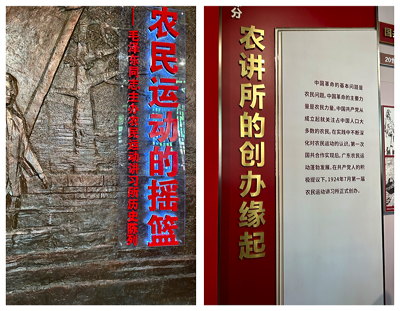 农民运动的摇篮
——毛泽东同志主办农民运动讲习所历史陈列
分
农讲所的创办缘起
中国革命的基本问题是
农民问题，中国革命的主要力
量是农民力量。中国共产党从
成立起就关注占中国人口大
多数的农民，在实践中不断深
化对农民运动的认识。第一次
国共合作实现后，广东农民运
动蓬勃发展。在共产党人的积
极提议下，1924年7月第一届
农民运动讲习所正式创办。